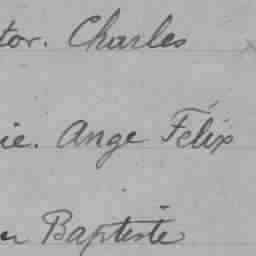 tor. Charles
ie. Ange Félix
n Baptiste